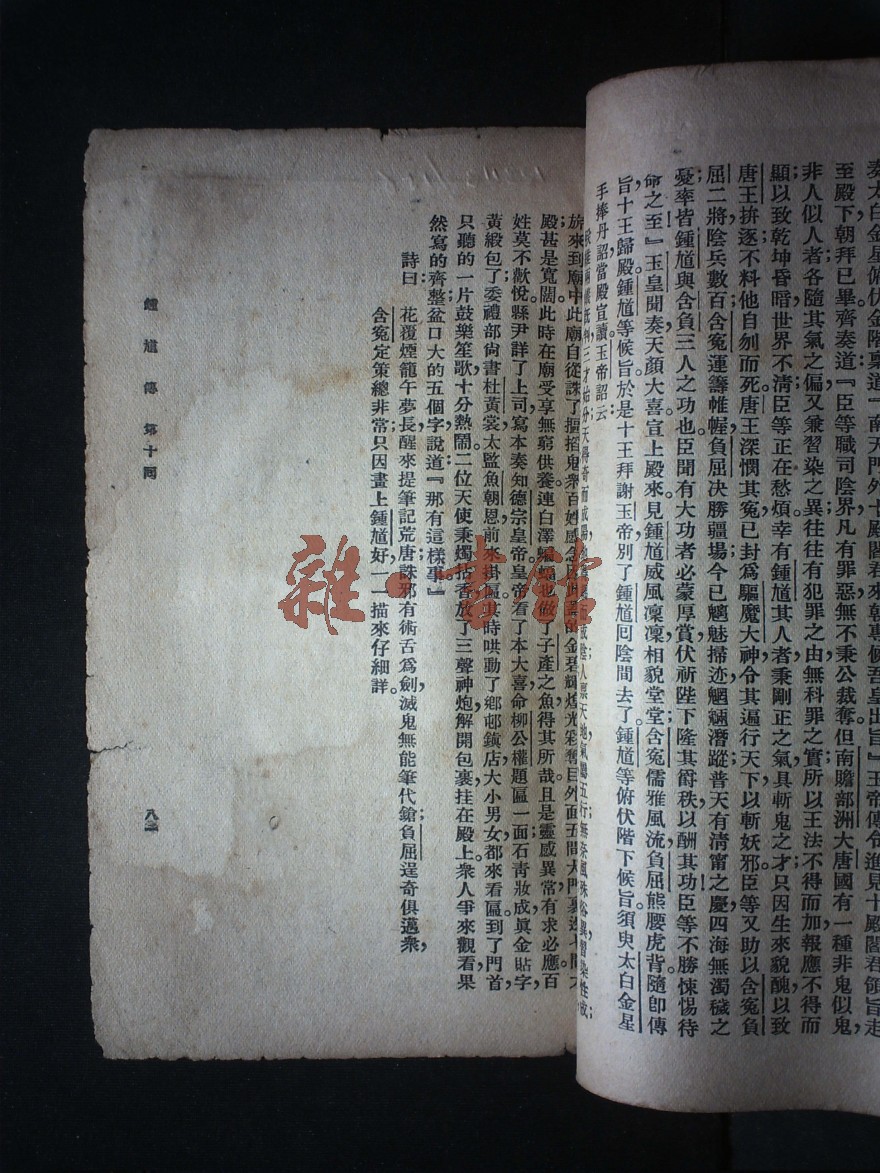 奏太白金星俯伏金階稟道『南天門外十殿閻君來朝專候吾皇出旨』玉帝傳令進見十殿閻君領旨走
至殿下朝拜已畢齊奏道『臣等職司陰界凡有罪惡無不秉公裁奪但南贍部洲大唐國有一種非鬼似鬼，
非人似人者各隨其氣之偏又兼習染之異往往有犯罪之由無科罪之實所以王法不得而加報應不得而
顯以致乾坤昏暗世界不清臣等正在愁煩幸有鍾馗其人者秉剛正之氣具斬鬼之才只因生來貌醜以致
唐王拚逐不料他自刎而死。唐王深憫其冤已封爲驅魔大神令其遍行天下以斬妖邪臣等又助以含冤負
屈二將陰兵數百含冤運籌帷幄負屈决勝疆場今已魑魅掃迹魍魎潛蹤普天有清甯之慶四海無濁穢之
憂率皆鍾馗與含負三人之功也臣聞有大功者必蒙厚賞伏祈陛下隆其爵秩以酬其功臣等不勝悚惕待
命之至』玉皇聞奏天顏大喜宣上殿來見鍾馗威風凜凜相貌堂堂含冤儒雅風流負屈熊腰虎背隨卽傳
旨十王歸殿鍾馗等候旨於是十王拜謝玉帝別了鍾馗囘陰間去了鍾馗等俯伏階下候旨須臾太白金星
手捧丹詔當殿宣讀玉帝詔云
旅來到廟中此廟自從誅了
殿甚是寬闊此時在廟受享無窮供養連白澤蝙蝠也做了子產之魚得其所哉且是靈感異常有求必應百
姓莫不歡悅縣尹詳了上司寫本奏知德宗皇帝皇帝看了本大喜命柳公權題匾一面石靑妝成眞金貼字，
黃緞包了委禮部尙書杜黃裳太監魚朝恩前來掛匾其時哄動了鄉邨鎭店大小男女都來看匾到了門首
只聽的一片鼓樂笙歌十分熱鬧二位天使秉燭拈香放了三聲神炮解開包裹挂在殿上衆人爭來觀看果
然寫的齊整盆口大的五個字說道『那有這樣事』
詩曰：花覆煙籠午夢長醒來提筆記荒唐誅邪有術舌爲劍滅鬼無能筆代鎗負屈逞奇俱邁衆，
含冤定策總非常只因畫上鍾馗好一一描來仔細詳。
鍾馗傳　第十回
雜·書館